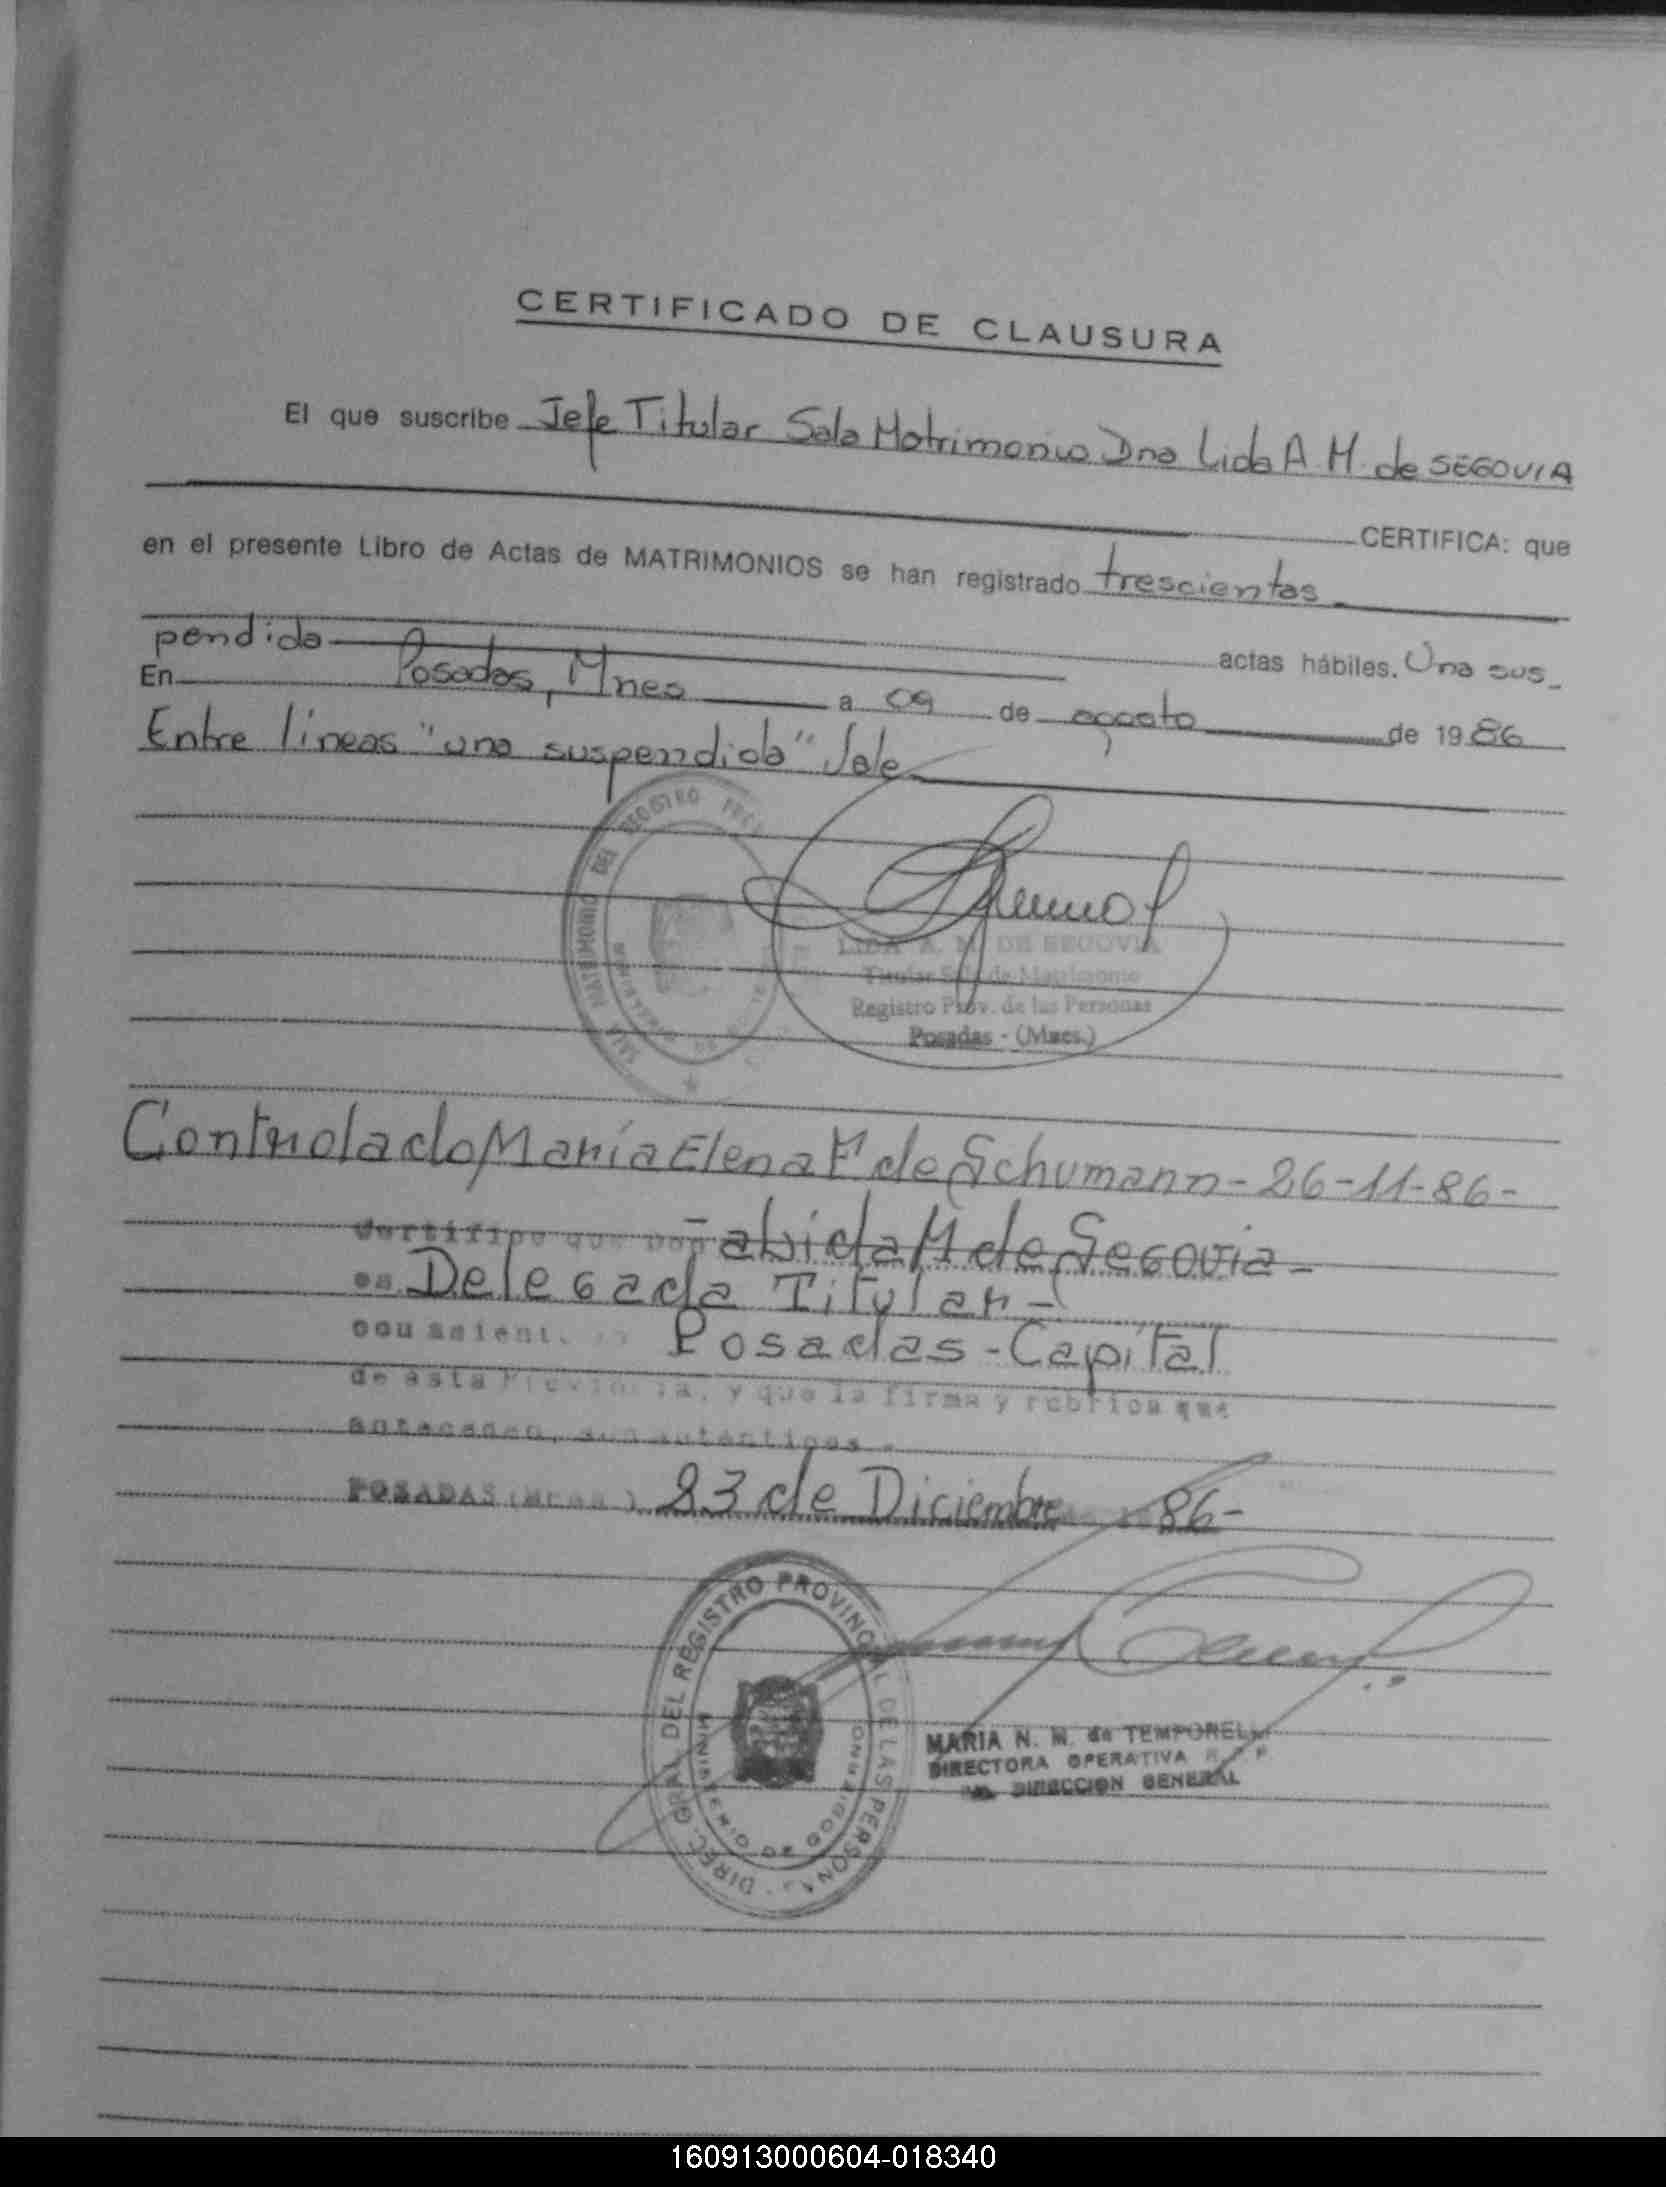 CERTIFICADO DE CLAUSURA
El que suscribe Jefe Titular Sala Matrimonio Dna Lida A. M. de SEGOVIA
CERTIFICA: que
en el presente Libro de Actas de MATRIMONIOS se han registrado trescientas
actas hábiles. Una sus-
pendida
En Posadas, Mnes a 09 de agosto de 1986
Entre líneas "una suspendida" Vale
SALA MATRIMONIO DEL REGISTRO
LIDA A. M. DE SEGOVIA
Titular Sala de Matrimonio
Registro Prov. de las Personas
Posadas - (Mnes.)
Controlado María Elena F de Schumann - 26-11-86-
Certifico que abida M de Segovia -
es Delegada Titular -
con asient. Posadas - Capital
de esta Provincia, y que la firma y rubrica que
antecaden, son auténticas -
POSADAS (Mnes.) 23 de Diciembre 86-
DIREC. GRAL. DEL REGISTRO PROVINCIAL DE LAS PERSONAS
MINISTERIO DE GOBIERNO
MARIA N. M. de TEMPORELLI
DIRECTORA OPERATIVA R. P. P.
DIRECCION GENERAL
160913000604-018340